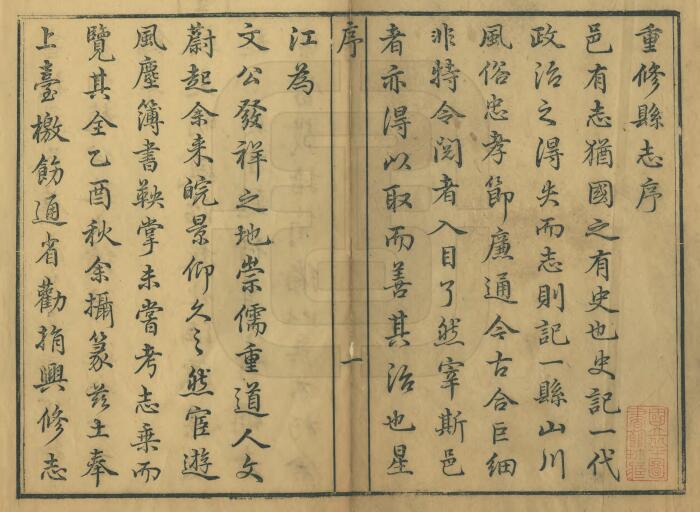 重修縣志序
邑有志猶國之有史也史記一代
政治之得失而志則記一縣山川
風俗忠孝節廉通今古合巨細
非特令閱者入目了然宰斯邑
者亦得以取而善其治也星
序
一
江為
文公發祥之地崇儒重道人文
蔚起余来皖景仰久之然宦遊
風塵簿書鞅掌未嘗考志乗而
覽其全乙酉秋余攝篆茲土奉
上臺檄飭通省勸捐興修志